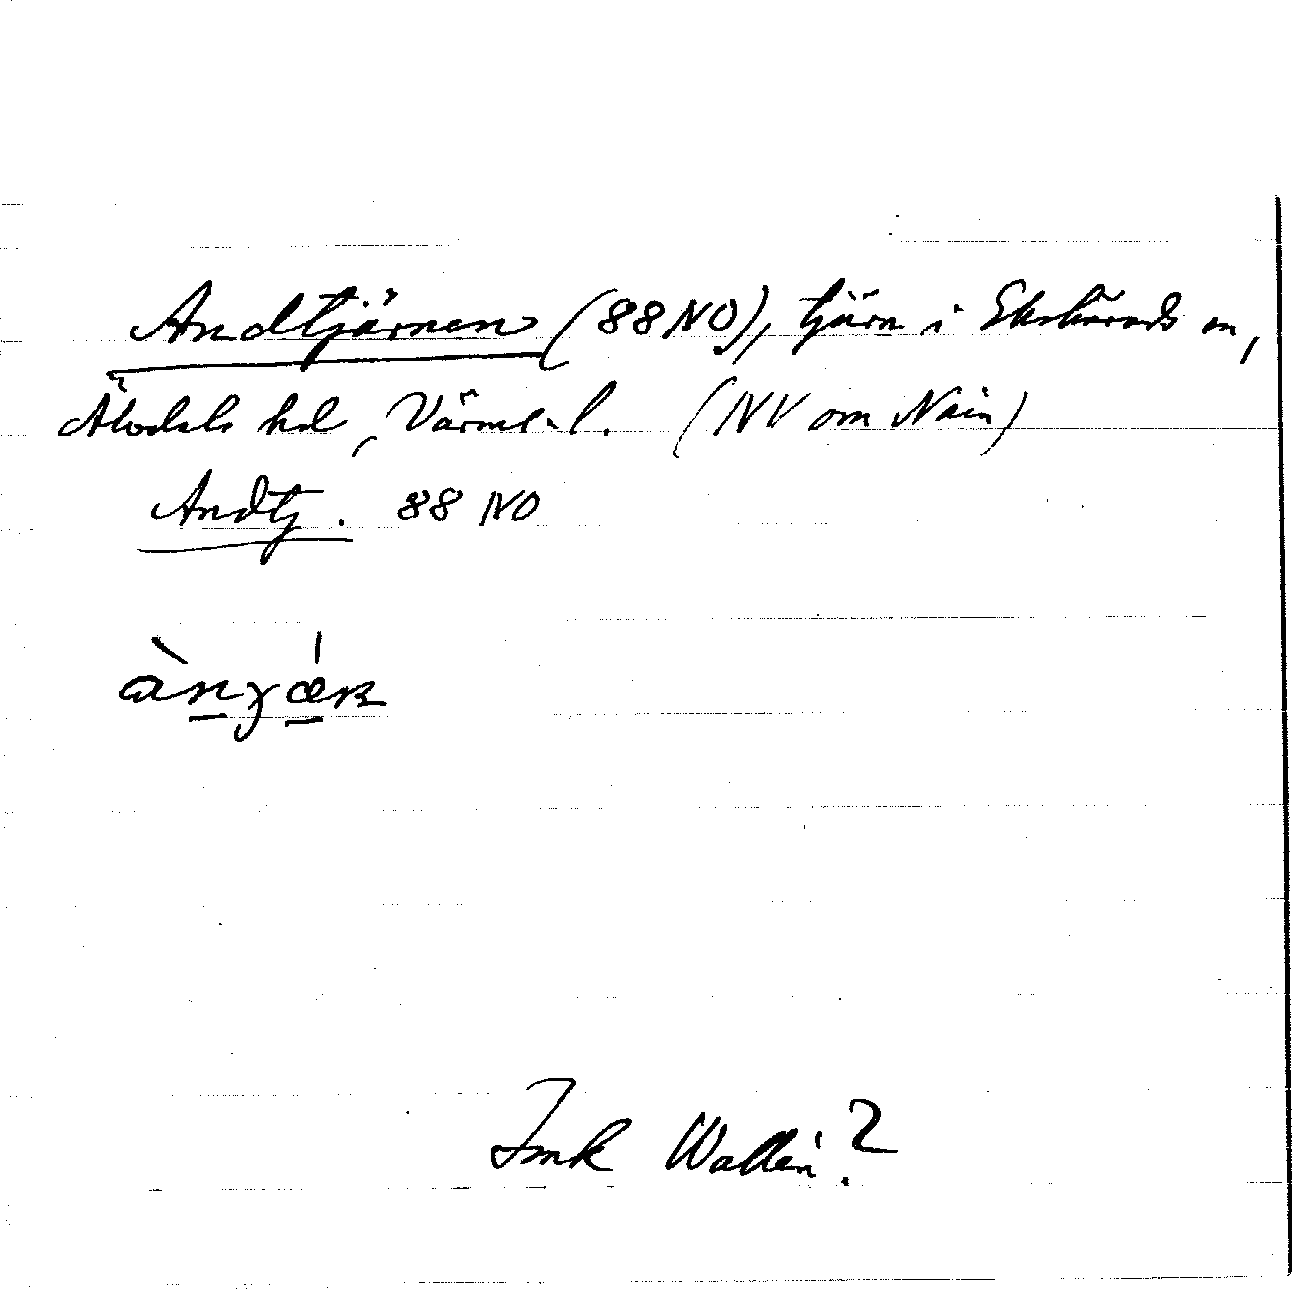 Andtjärnen (88 NO), tjärn i Ekshärads sn,
Älvdals hd, Värml. l. (NV om Nain)
Andtj. 88 NO
Jmk Wallén?